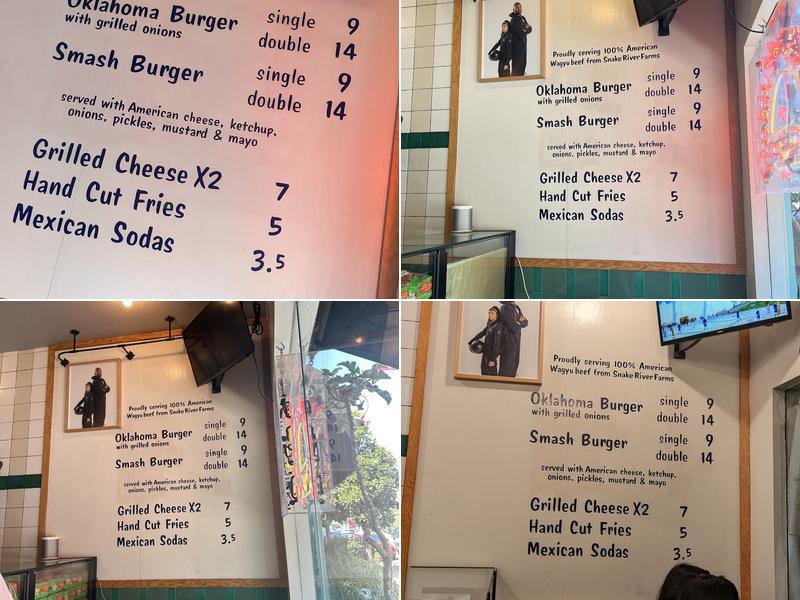 Oklahoma Burger single 9
with grilled onions double 14
Smash Burger single 9
double 14
served with American cheese, ketchup,
onions, pickles, mustard & mayo
Grilled Cheese X2 7
Hand Cut Fries 5
Mexican Sodas 3.5
Proudly serving 100% American
Wagyu beef from Snake River Farms
Oklahoma Burger single 9
with grilled onions double 14
Smash Burger single 9
double 14
served with American cheese, ketchup,
onions, pickles, mustard & mayo
Grilled Cheese X2 7
Hand Cut Fries 5
Mexican Sodas 3.5
Proudly serving 100% American
Wagyu beef from Snake River Farms
Oklahoma Burger single 9
with grilled onions double 14
Smash Burger single 9
double 14
served with American cheese, ketchup,
onions, pickles, mustard & mayo
Grilled Cheese X2 7
Hand Cut Fries 5
Mexican Sodas 3.5
Proudly serving 100% American
Wagyu beef from Snake River Farms
Oklahoma Burger single 9
with grilled onions double 14
Smash Burger single 9
double 14
served with American cheese, ketchup,
onions, pickles, mustard & mayo
Grilled Cheese X2 7
Hand Cut Fries 5
Mexican Sodas 3.5